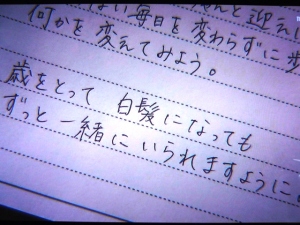 ない毎日を変わらずに歩
何かを変えてみよう。
歳をとって 白髪になっても
ずっと一緒にいられますように。